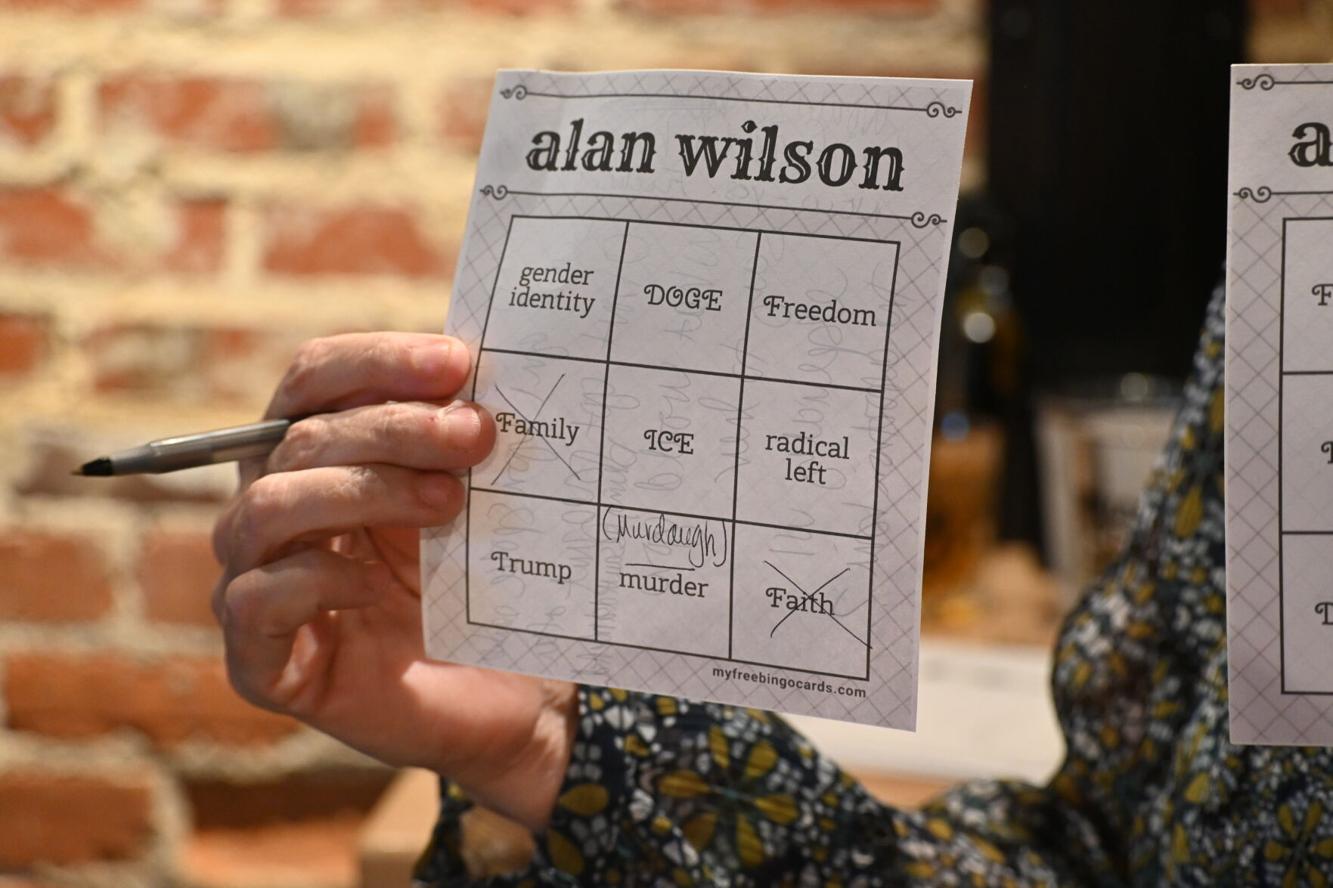 alan wilson
gender
identity
DOGE
Freedom
Family
ICE
radical
left
Trump
(Murdaugh)
murder
Faith
myfreebingocards.com
a
F